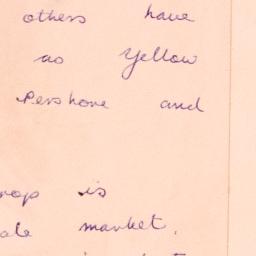 others have
as Yellow
Pershore and
rop is
ale market.